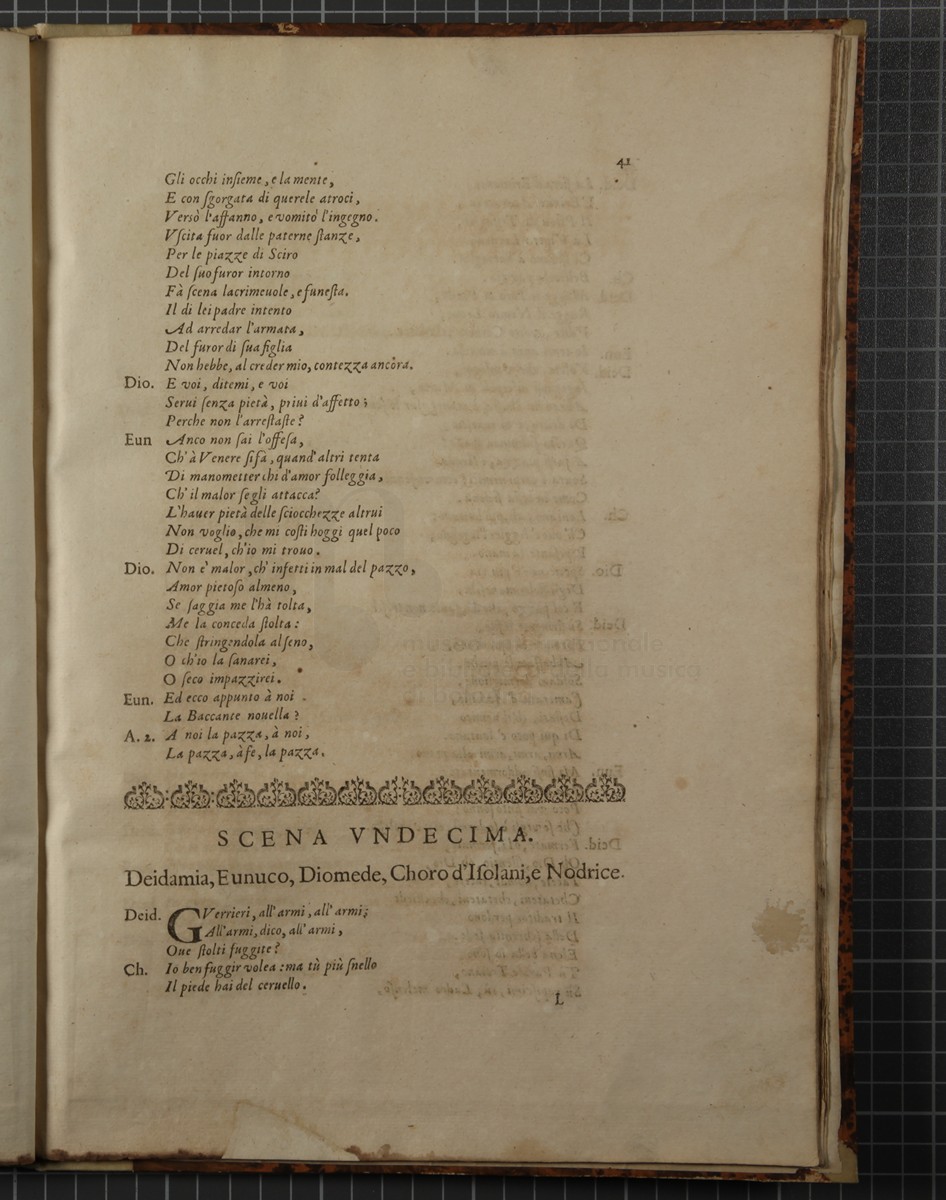 41
Gli occhi inſieme, e la mente,
E con ſgorgata di querele atroci,
Versò l'affanno, e vomitò l'ingegno.
Vſcita fuor dalle paterne ſtanze,
Per le piazze di Sciro
Del ſuo furor intorno
Fà ſcena lacrimeuole, e funeſta.
Il di lei padre intento
Ad arredar l'armata,
Del furor di ſua figlia
Non hebbe, al creder mio, contezza ancora.
Dio. E voi, ditemi, e voi
Serui ſenza pietà, priui d'affetto;
Perche non l'arreſtaſte?
Eun Anco non ſai l'offeſa,
Ch'à Venere ſi fà, quand'altri tenta
Di manometter chi d'amor folleggia,
Ch'il malor ſegli attacca?
L'hauer pietà delle ſciocchezze altrui
Non voglio, che mi coſti hoggi quel poco
Di ceruel, ch'io mi trouo.
Dio. Non e' malor, ch'infetti in mal del pazzo,
Amor pietoſo almeno,
Se ſaggia me l'hà tolta,
Me la conceda ſtolta:
Che ſtringendola al ſeno,
O ch'io la ſanarei,
O ſeco impazzirei.
Eun. Ed ecco appunto à noi
La Baccante nouella?
A. 2. A noi la pazza, à noi,
La pazza, à fe, la pazza.
SCENA VNDECIMA.
Deidamia, Eunuco, Diomede, Choro d'Iſolani, e Nodrice.
Deid. GVerrieri, all'armi, all'armi;
All'armi, dico, all'armi,
Oue ſtolti fuggite?
Ch. Io ben fuggir volea: ma tù più ſnello
Il piede hai del ceruello.
L